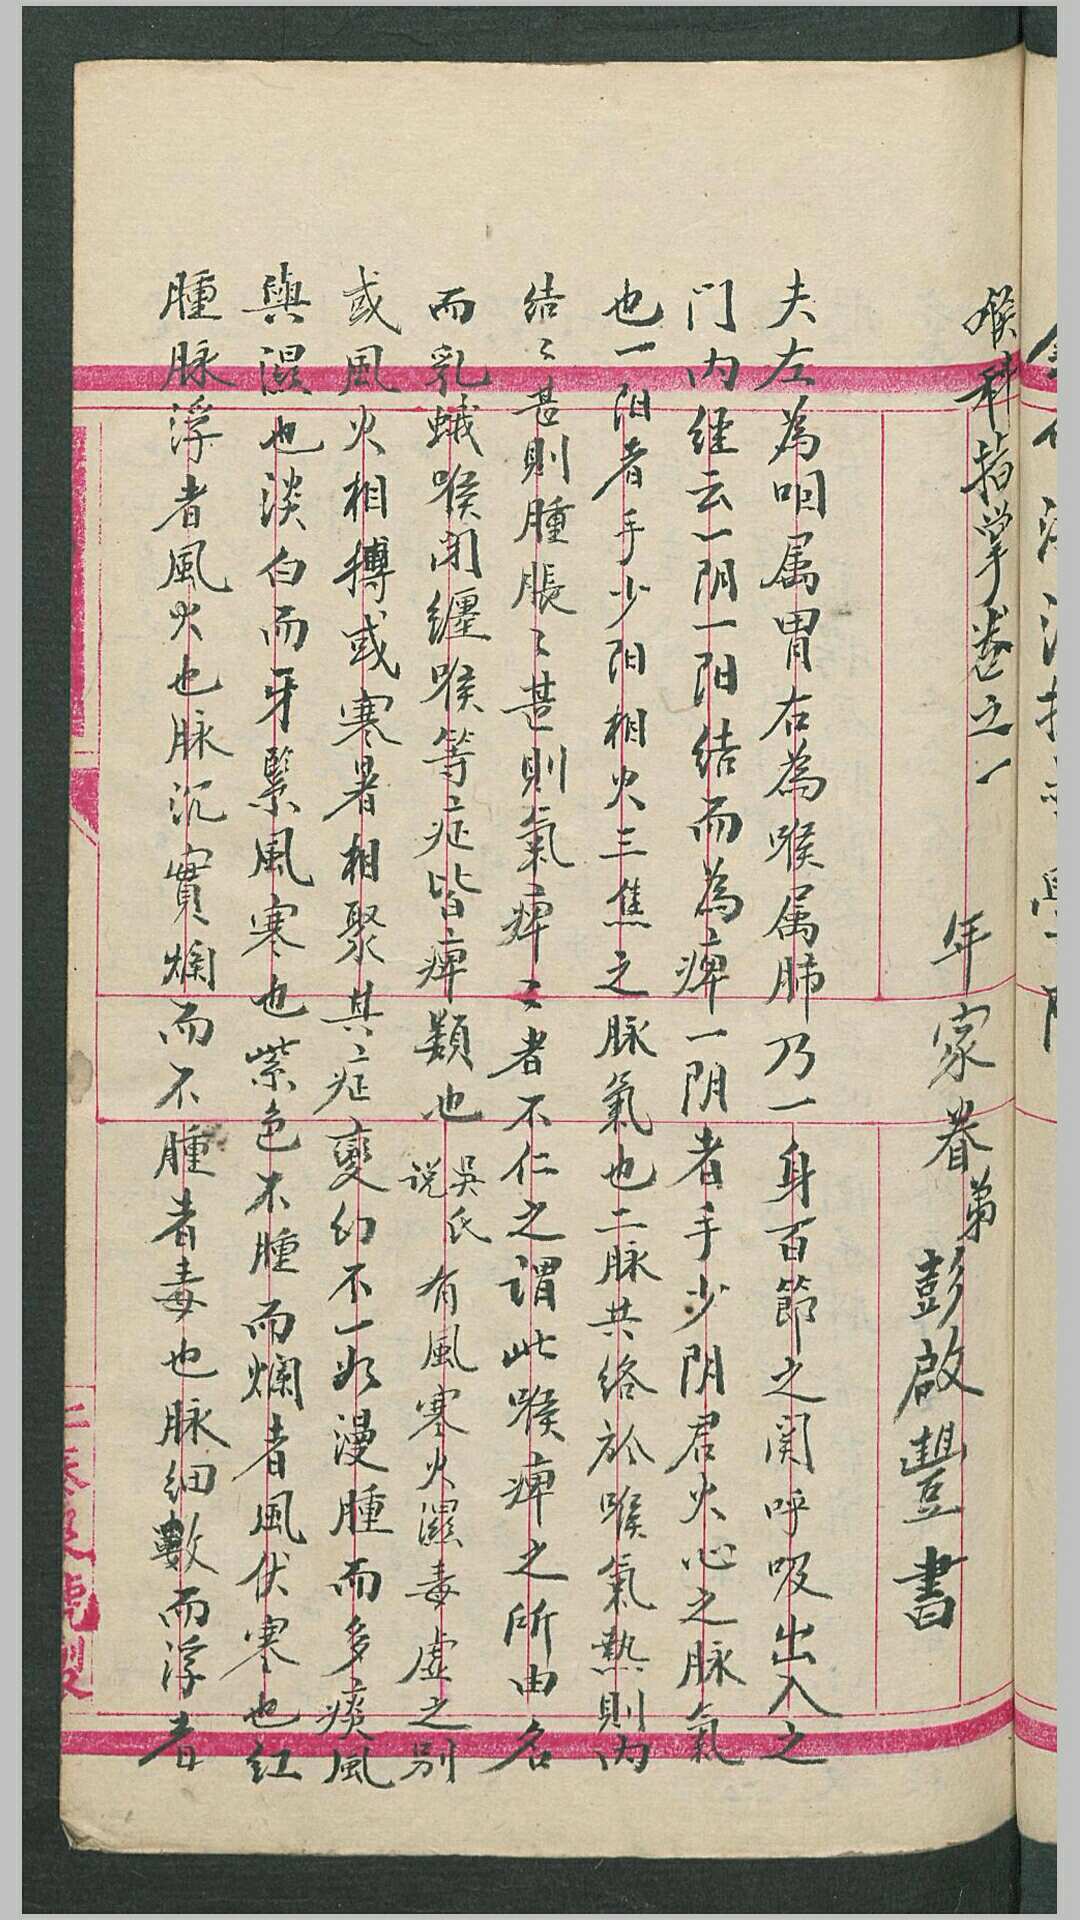 喉科指掌卷之一
年家眷弟彭啟豐書
夫左為咽属胃右為喉属肺乃一身百節之関呼吸出入之
门内经云一阴一阳结而為痺一阴者手少阴君火心之脉氣
也一阳者手少阳相火三焦之脉氣也二脉共络於喉氣热則内
结〻甚則腫脹〻甚則氣痺〻者不仁之謂此喉痺之所由名
而乳蛾喉闭纏喉等症皆痺類也吳氏说有風寒火濕毒虛之别
或風火相摶或寒暑相聚其症变幻不一如漫腫而多痰風
與濕也淡白而牙緊風寒也紫色不腫而爛者風伏寒也红
腫脉浮者風火也脉沉實爛而不腫者毒也脉细數而浮者